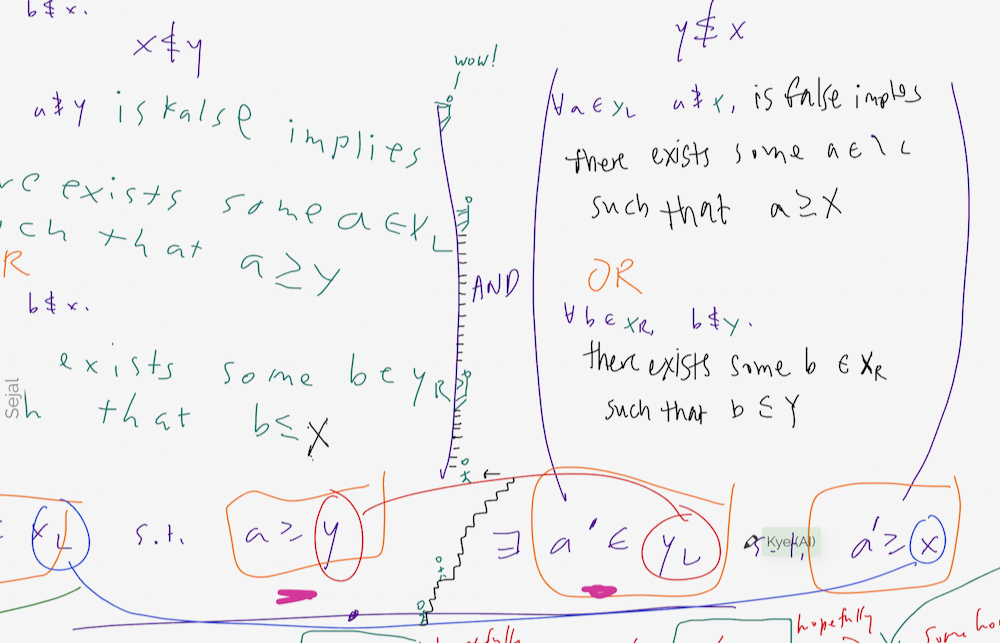 b≰x.
x≰y
y≰x
wow!
a≱y is false implies
exists some a∈X_L
that a≥y
R
b≰x.
exists some b∈y_R
that b≤X
AND
∀a∈y_L a≱x, is false implies
there exists some a∈
such that a≥X
OR
∀b∈x_R, b≰y.
there exists some b∈X_R
such that b≤Y
Sejal
x_L s.t. a≥y ∃ a'∈y_L s.t. a'≥x
Kye(AI)
hopefully
hopefully
some